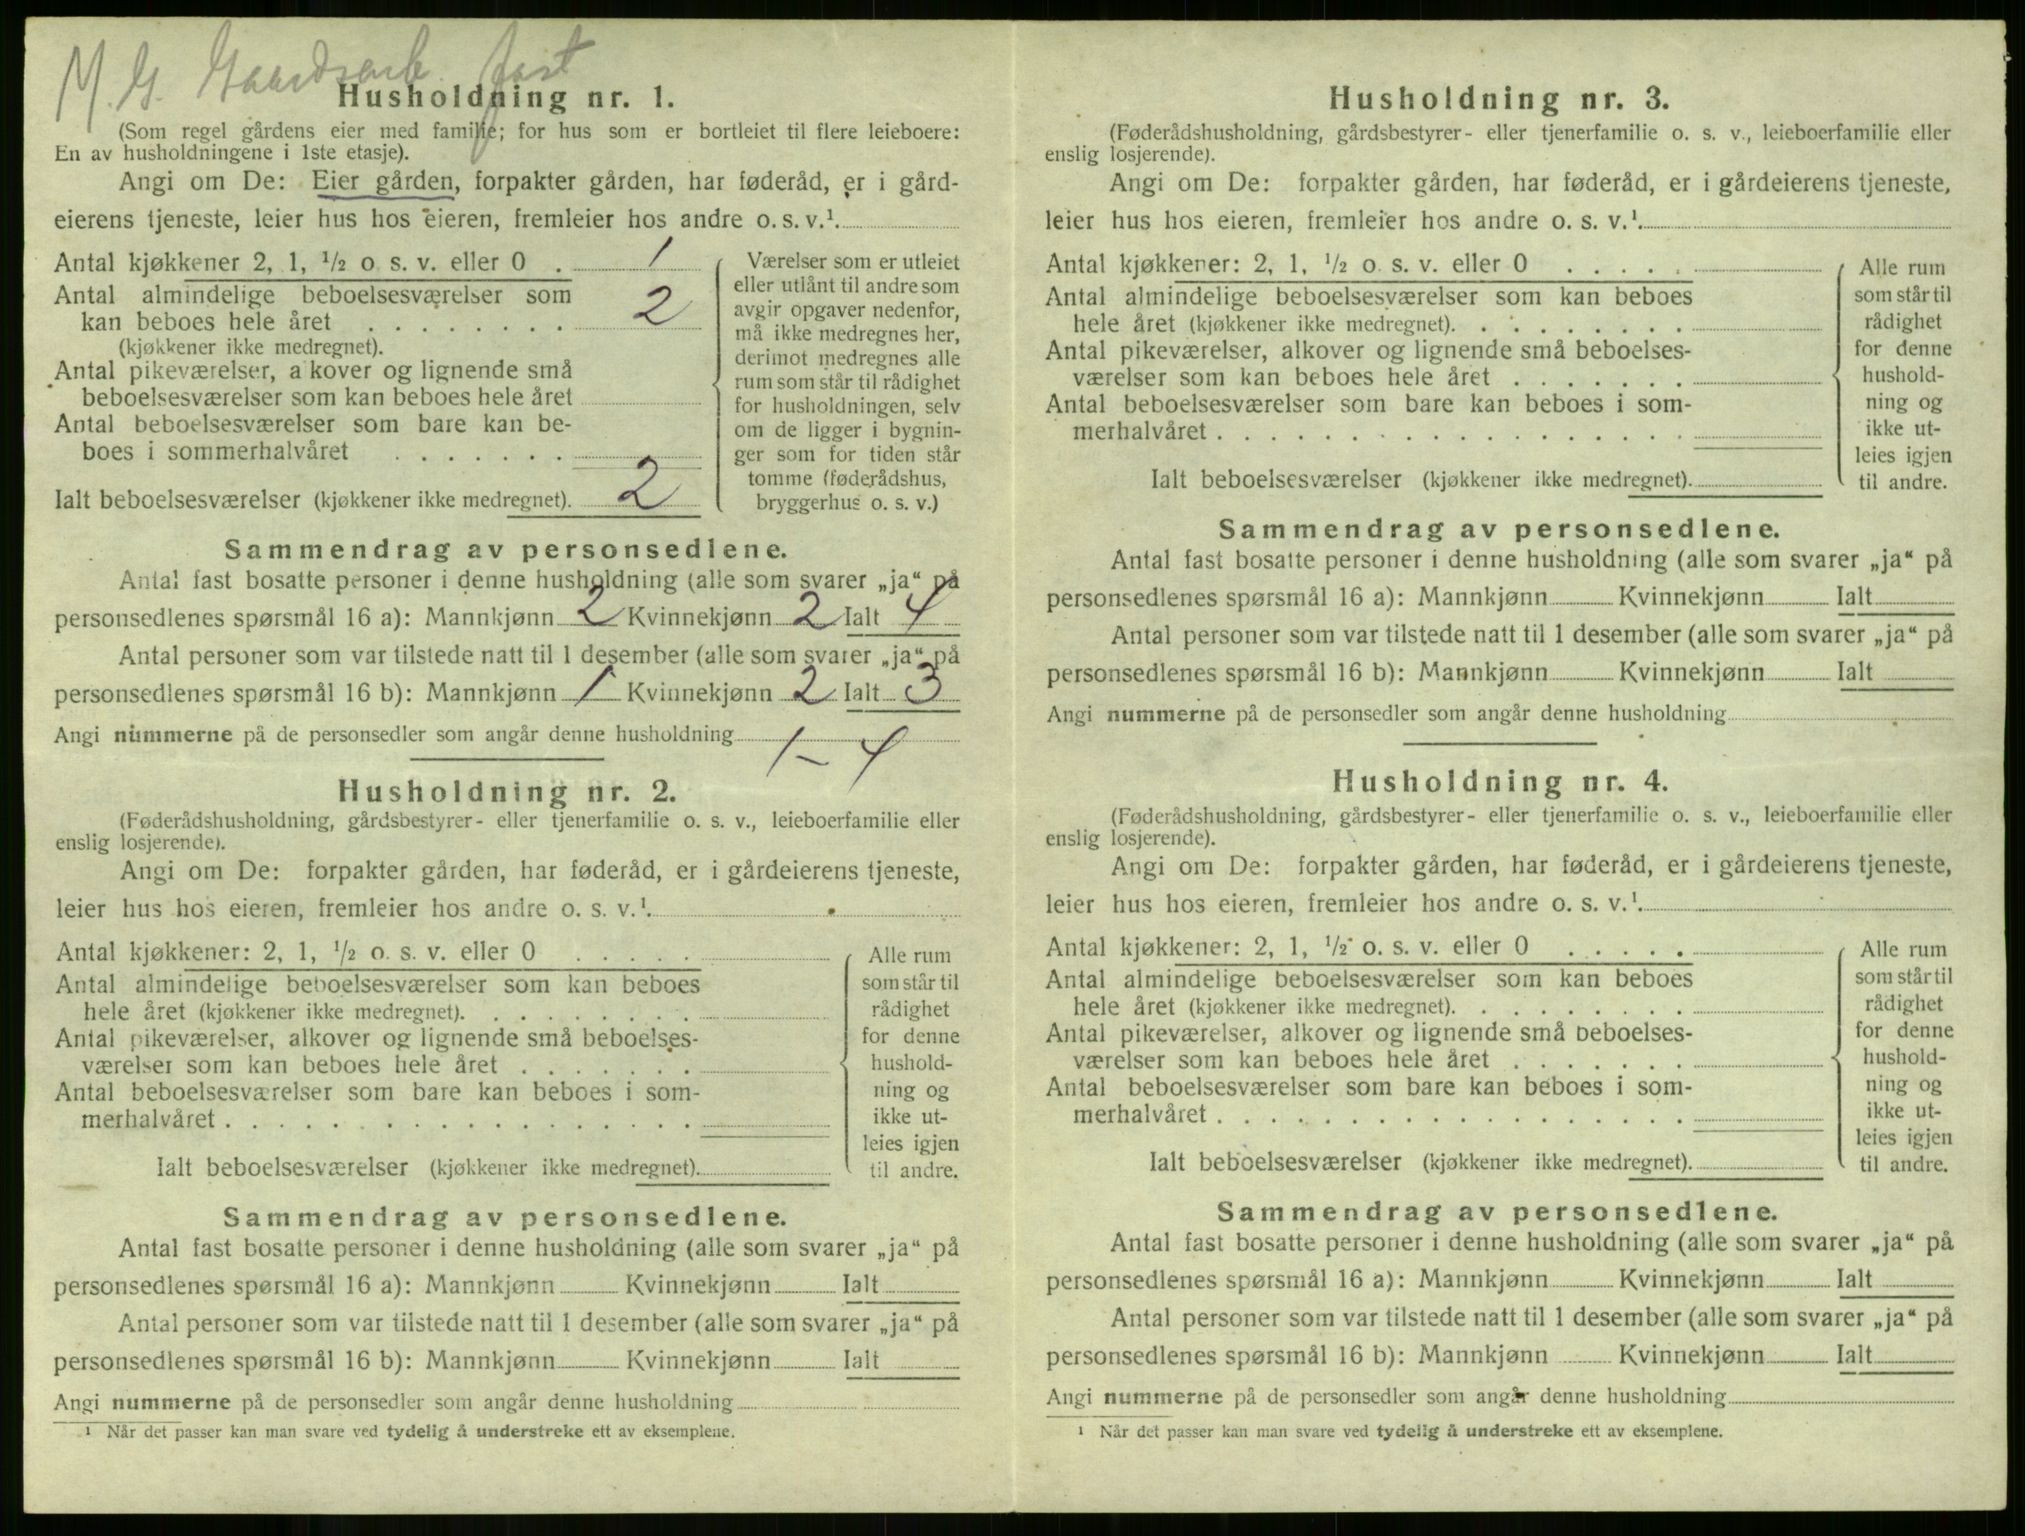 M. G. Gaardsarb. fast
Husholdning nr. 1.
(Som regel gårdens eier med familje; for hus som er bortleiet til flere leieboere:
En av husholdningene i 1ste etasje).
Angi om De: Eier gården, forpakter gården, har føderåd, er i gård-
eierens tjeneste, leier hus hos eieren, fremleier hos andre o. s. v.¹.
Antal kjøkkener 2, 1, ¹/₂ o s. v. eller 0 . 1
Antal almindelige beboelsesværelser som
kan beboes hele året . . . . . . . . 2
(kjøkkener ikke medregnet).
Antal pikeværelser, a kover og lignende små
beboelsesværelser som kan beboes hele året
Antal beboelsesværelser som bare kan be-
boes i sommerhalvåret . . . . . . .
Ialt beboelsesværelser (kjøkkener ikke medregnet). 2
Værelser som er utleiet
eller utlånt til andre som
avgir opgaver nedenfor,
må ikke medregnes her,
derimot medregnes alle
rum som står til rådighet
for husholdningen, selv
om de ligger i bygnin-
ger som for tiden står
tomme (føderådshus,
bryggerhus o. s. v.)
Sammendrag av personsedlene.
Antal fast bosatte personer i denne husholdning (alle som svarer „ja“ på
personsedlenes spørsmål 16 a): Mannkjønn 2 Kvinnekjønn 2 Ialt 4
Antal personer som var tilstede natt til 1 desember (alle som svarer „ja“ på
personsedlenes spørsmål 16 b): Mannkjønn 1 Kvinnekjønn 2 Ialt 3
Angi nummerne på de personsedler som angår denne husholdning 1-4
Husholdning nr. 2.
(Føderådshusholdning, gårdsbestyrer- eller tjenerfamilie o. s. v., leieboerfamilie eller
enslig losjerende).
Angi om De: forpakter gården, har føderåd, er i gårdeierens tjeneste,
leier hus hos eieren, fremleier hos andre o. s. v.¹.
Antal kjøkkener: 2, 1, ¹/₂ o. s. v. eller 0 . . . . .
Antal almindelige beboelsesværelser som kan beboes
hele året (kjøkkener ikke medregnet). . . . . . . . .
Antal pikeværelser, alkover og lignende små beboelses-
værelser som kan beboes hele året . . . . . . .
Antal beboelsesværelser som bare kan beboes i som-
merhalvåret . . . . . . . . . . . . . . . . . .
Ialt beboelsesværelser (kjøkkener ikke medregnet).
Alle rum
som står til
rådighet
for denne
hushold-
ning og
ikke ut-
leies igjen
til andre.
Sammendrag av personsedlene.
Antal fast bosatte personer i denne husholdning (alle som svarer „ja“ på
personsedlenes spørsmål 16 a): Mannkjønn Kvinnekjønn Ialt
Antal personer som var tilstede natt til 1 desember (alle som svarer „ja“ på
personsedlenes spørsmål 16 b): Mannkjønn Kvinnekjønn Ialt
Angi nummerne på de personsedler som angår denne husholdning
¹ Når det passer kan man svare ved tydelig å understreke ett av eksemplene.
Husholdning nr. 3.
(Føderådshusholdning, gårdsbestyrer- eller tjenerfamilie o. s. v., leieboerfamilie eller
enslig losjerende).
Angi om De: forpakter gården, har føderåd, er i gårdeierens tjeneste,
leier hus hos eieren, fremleier hos andre o. s. v.¹.
Antal kjøkkener: 2, 1, ¹/₂ o. s. v. eller 0 . . . . .
Antal almindelige beboelsesværelser som kan beboes
hele året (kjøkkener ikke medregnet). . . . . . . . .
Antal pikeværelser, alkover og lignende små beboelses-
værelser som kan beboes hele året . . . . . . .
Antal beboelsesværelser som bare kan beboes i som-
merhalvåret . . . . . . . . . . . . . . . . . .
Ialt beboelsesværelser (kjøkkener ikke medregnet).
Alle rum
som står til
rådighet
for denne
hushold-
ning og
ikke ut-
leies igjen
til andre.
Sammendrag av personsedlene.
Antal fast bosatte personer i denne husholdning (alle som svarer „ja“ på
personsedlenes spørsmål 16 a): Mannkjønn Kvinnekjønn Ialt
Antal personer som var tilstede natt til 1 desember (alle som svarer „ja“ på
personsedlenes spørsmål 16 b): Mannkjønn Kvinnekjønn Ialt
Angi nummerne på de personsedler som angår denne husholdning
Husholdning nr. 4.
(Føderådshusholdning, gårdsbestyrer- eller tjenerfamilie o. s. v., leieboerfamilie eller
enslig losjerende).
Angi om De: forpakter gården, har føderåd, er i gårdeierens tjeneste,
leier hus hos eieren, fremleier hos andre o. s. v.¹.
Antal kjøkkener: 2, 1, ¹/₂ o. s. v. eller 0 . . . . .
Antal almindelige beboelsesværelser som kan beboes
hele året (kjøkkener ikke medregnet). . . . . . . . .
Antal pikeværelser, alkover og lignende små beboelses-
værelser som kan beboes hele året . . . . . . .
Antal beboelsesværelser som bare kan beboes i som-
merhalvåret . . . . . . . . . . . . . . . . . .
Ialt beboelsesværelser (kjøkkener ikke medregnet).
Alle rum
som står til
rådighet
for denne
hushold-
ning og
ikke ut-
leies igjen
til andre.
Sammendrag av personsedlene.
Antal fast bosatte personer i denne husholdning (alle som svarer „ja“ på
personsedlenes spørsmål 16 a): Mannkjønn Kvinnekjønn Ialt
Antal personer som var tilstede natt til 1 desember (alle som svarer „ja“ på
personsedlenes spørsmål 16 b): Mannkjønn Kvinnekjønn Ialt
Angi nummerne på de personsedler som angår denne husholdning
¹ Når det passer kan man svare ved tydelig å understreke ett av eksemplene.